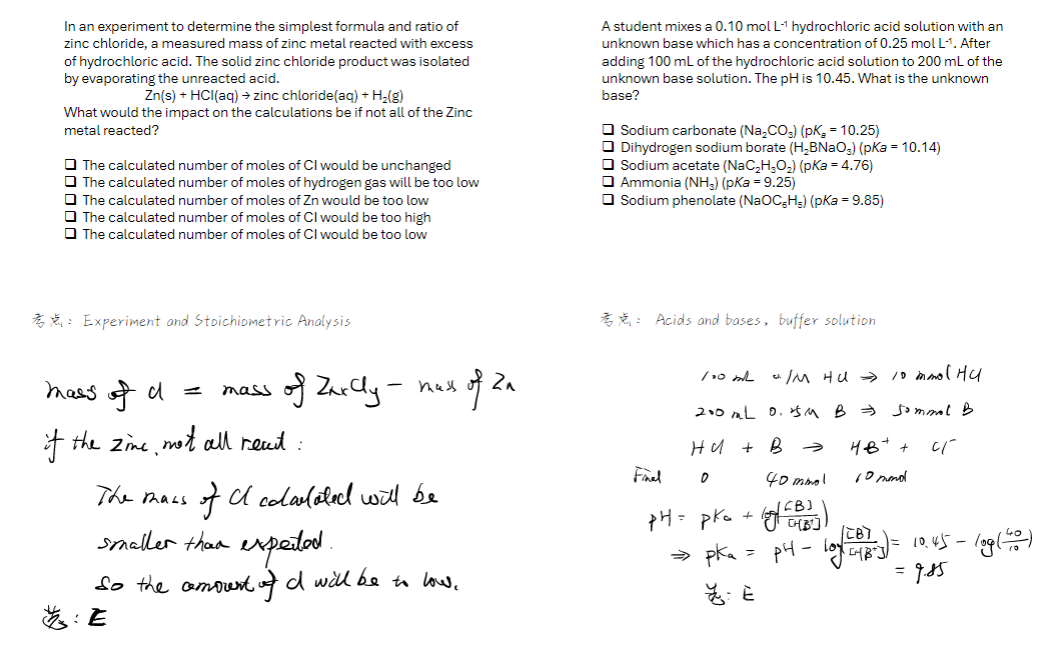 In an experiment to determine the simplest formula and ratio of
zinc chloride, a measured mass of zinc metal reacted with excess
of hydrochloric acid. The solid zinc chloride product was isolated
by evaporating the unreacted acid.
Zn(s) + HCl(aq) → zinc chloride(aq) + H₂(g)
What would the impact on the calculations be if not all of the Zinc
metal reacted?
❑ The calculated number of moles of Cl would be unchanged
❑ The calculated number of moles of hydrogen gas will be too low
❑ The calculated number of moles of Zn would be too low
❑ The calculated number of moles of Cl would be too high
❑ The calculated number of moles of Cl would be too low
考点: Experiment and Stoichiometric Analysis
mass of Cl = mass of ZnxCly - mass of Zn
if the zinc not all react :
The mass of Cl calculated will be
smaller than expected.
So the amount of Cl will be to low.
选: E
A student mixes a 0.10 mol L⁻¹ hydrochloric acid solution with an
unknown base which has a concentration of 0.25 mol L⁻¹. After
adding 100 mL of the hydrochloric acid solution to 200 mL of the
unknown base solution. The pH is 10.45. What is the unknown
base?
❑ Sodium carbonate (Na₂CO₃) (pKₐ = 10.25)
❑ Dihydrogen sodium borate (H₂BNaO₃) (pKa = 10.14)
❑ Sodium acetate (NaC₂H₃O₂) (pKa = 4.76)
❑ Ammonia (NH₃) (pKa = 9.25)
❑ Sodium phenolate (NaOC₆H₅) (pKa = 9.85)
考点: Acids and bases, buffer solution
100 mL 0.1M HCl ⇒ 10 mmol HCl
200 mL 0.25M B ⇒ 50 mmol B
HCl + B → HB⁺ + Cl⁻
Final 0 40 mmol 10 mmol
pH = pKa + log([B]/[HB⁺])
⇒ pKa = pH - log([B]/[HB⁺]) = 10.45 - log(40/10)
= 9.85
选: E